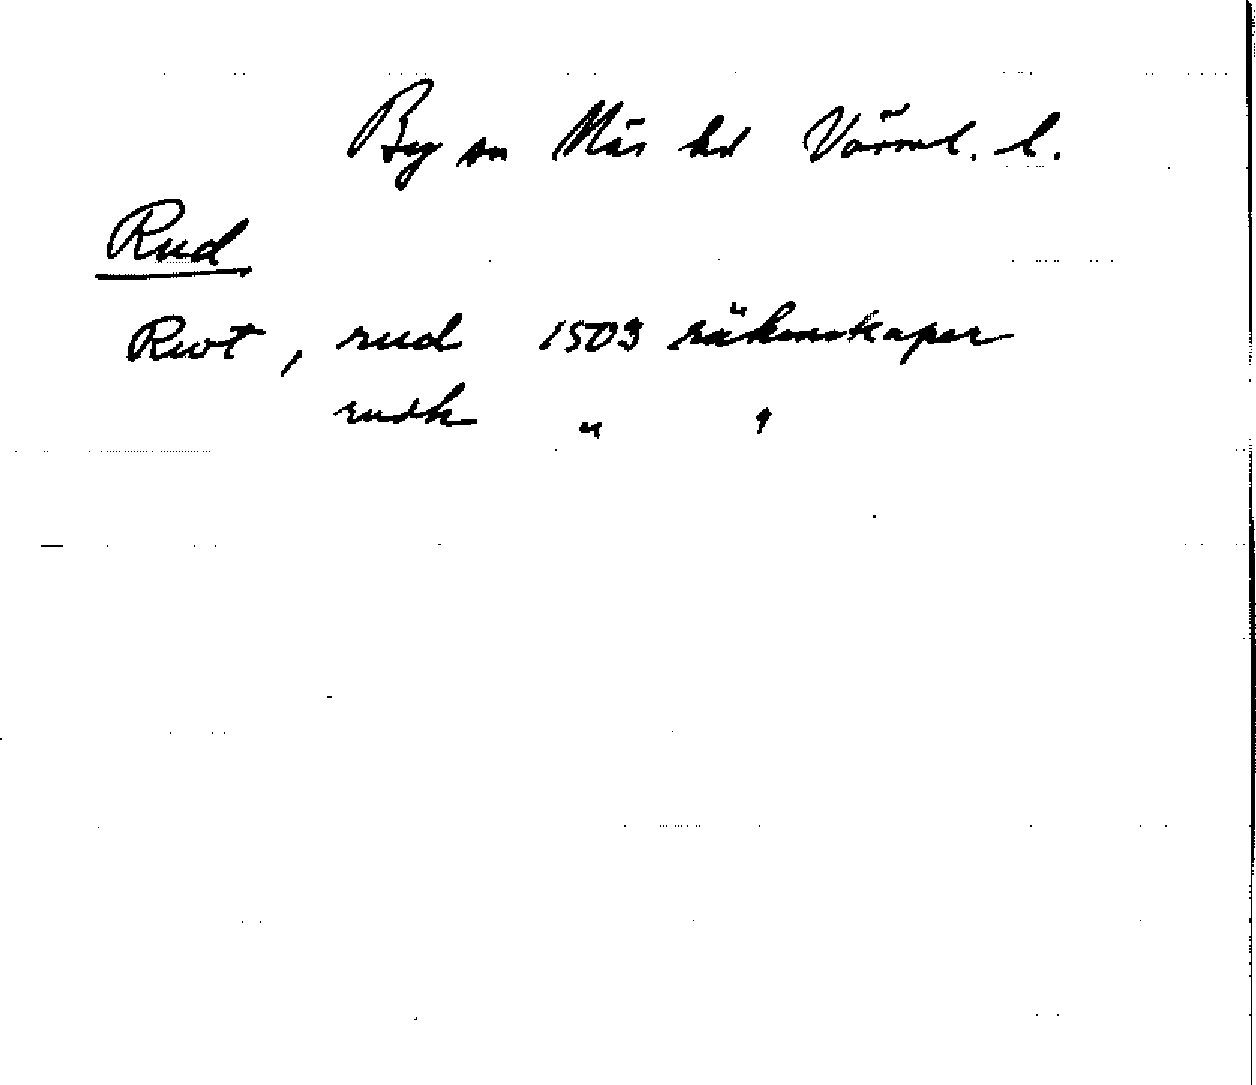 By sn Näs hd Värml. l.
Rud
Rwt, rud 1503 räkenskaper
rudh " "